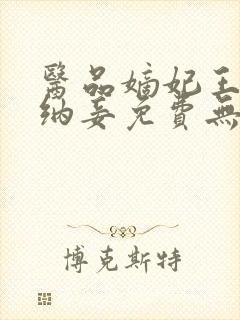 醫品嫡妃王
納妾免費無
博克斯特